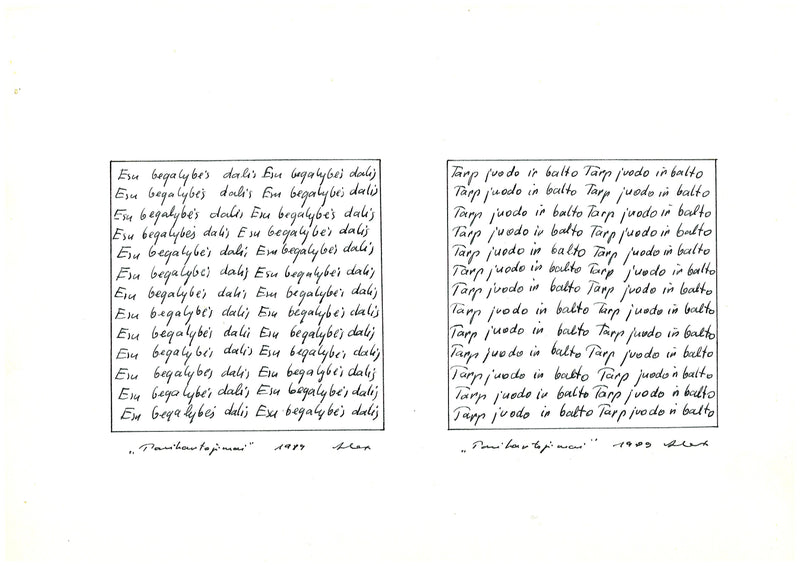 Esu begalybės dalis Esu begalybės dalis
Esu begalybės dalis Esu begalybės dalis
Esu begalybės dalis Esu begalybės dalis
Esu begalybės dalis Esu begalybės dalis
Esu begalybės dalis Esu begalybės dalis
Esu begalybės dalis Esu begalybės dalis
Esu begalybės dalis Esu begalybės dalis
Esu begalybės dalis Esu begalybės dalis
Esu begalybės dalis Esu begalybės dalis
Esu begalybės dalis Esu begalybės dalis
Esu begalybės dalis Esu begalybės dalis
Esu begalybės dalis Esu begalybės dalis
Esu begalybės dalis Esu begalybės dalis
„Pasikartojimai" 1989 Alex
Tarp juodo ir balto Tarp juodo ir balto
Tarp juodo ir balto Tarp juodo ir balto
Tarp juodo ir balto Tarp juodo ir balto
Tarp juodo ir balto Tarp juodo ir balto
Tarp juodo ir balto Tarp juodo ir balto
Tarp juodo ir balto Tarp juodo ir balto
Tarp juodo ir balto Tarp juodo ir balto
Tarp juodo ir balto Tarp juodo ir balto
Tarp juodo ir balto Tarp juodo ir balto
Tarp juodo ir balto Tarp juodo ir balto
Tarp juodo ir balto Tarp juodo ir balto
Tarp juodo ir balto Tarp juodo ir balto
Tarp juodo ir balto Tarp juodo ir balto
„Pasikartojimai" 1989 Alex